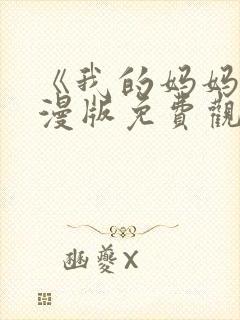 《我的妈妈
漫版免費觀
豳夔X